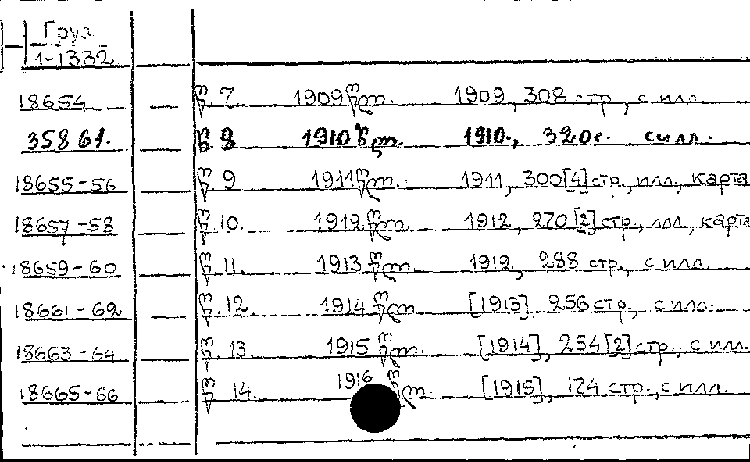 Груз.
1-1332
18654 — წ. 7. 1909 წლ. 1909, 308 стр., с илл.
35861. — წ. 8 1910 წლ. 1910., 320 с. с илл.
18655-56 — წ. 9 1911 წლ. 1911, 300 [4] стр., илл., карта
18657-58 — წ. 10. 1912 წლ. 1912, 270 [2] стр., илл., карта
18659-60 — წ. 11. 1913 წლ. 1912, 288 стр., с илл.
18661-62 — წ. 12 1914 წლ. [1913] 256 стр., с илл.
18663-64 — წ. 13. 1915 წლ. [1914], 254 [2] стр., с илл.
18665-66 — წ. 14. 1916 წლ. [1915], 124 стр., с илл.